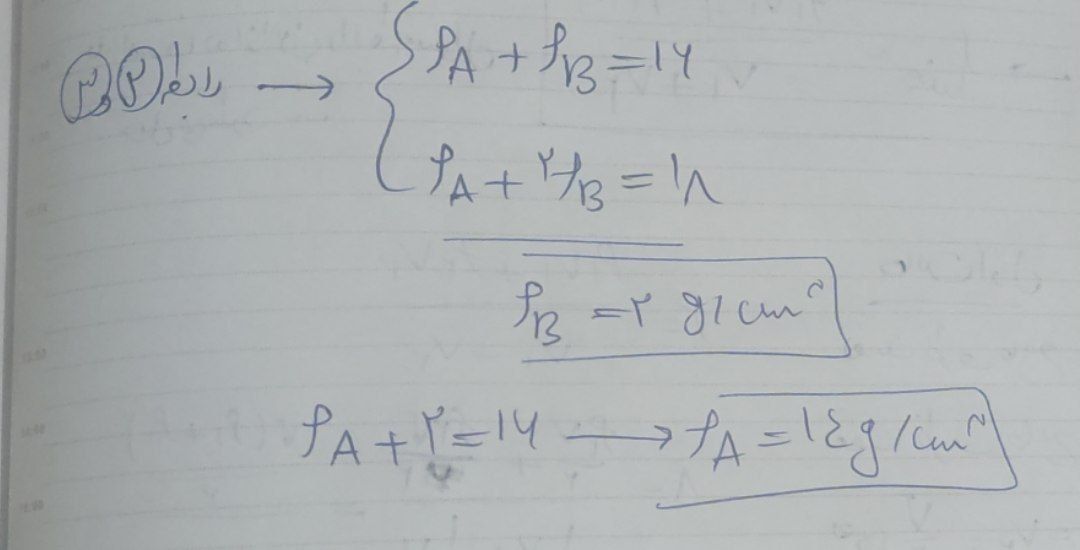 رابطه ۲ و ۳ → { ρA + ρB = ۱۶
ρA + ۲ρB = ۱۸
ρB = ۲ g/cm³
ρA + ۲ = ۱۶ → ρA = ۱٤ g/cm³